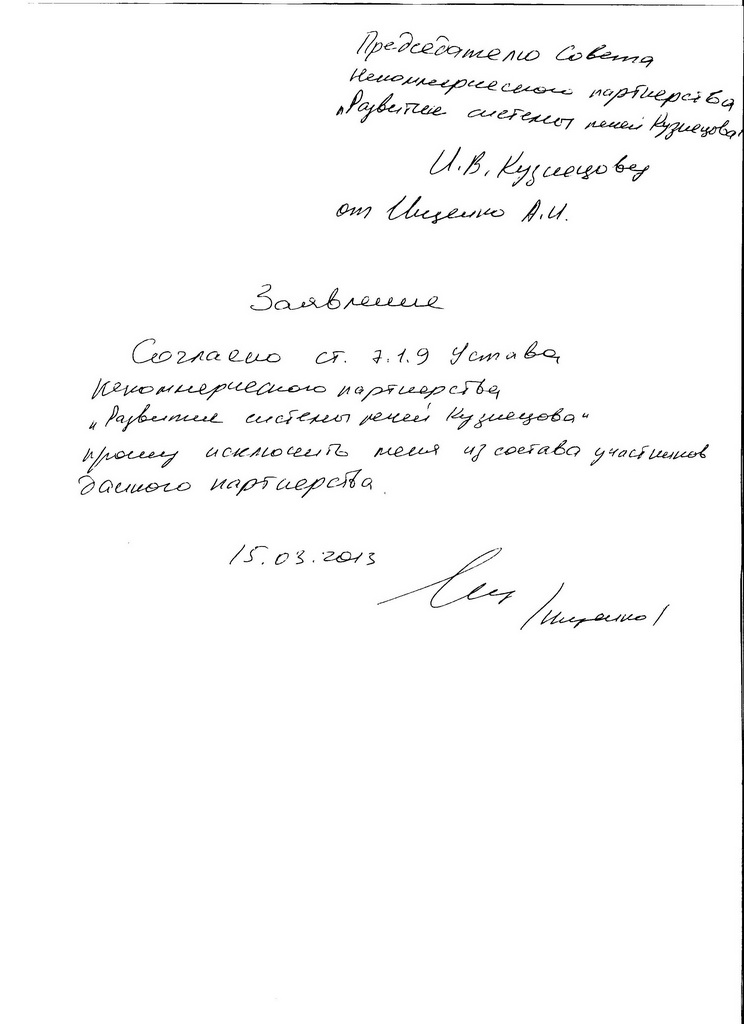 Председателю Совета
Некоммерческого партнерства
„Развитие системы печей Кузнецова"
И.В. Кузнецову
от Ищенко А.И.
Заявление
Согласно ст. 7.1.9 Устава
Некоммерческого партнерства
„Развитие системы печей Кузнецова"
прошу исключить меня из состава участников
данного партнерства.
15.03.2013
/Ищенко/